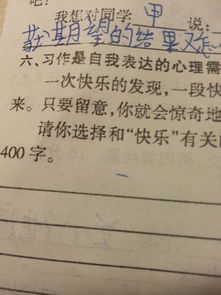 吧!
我想对同学 甲 说:
我期望的结果又
六、习作是自我表达的心理需
一次快乐的发现,一段快
来。只要留意,你就会惊奇地
请你选择和“快乐”有关的
400字。